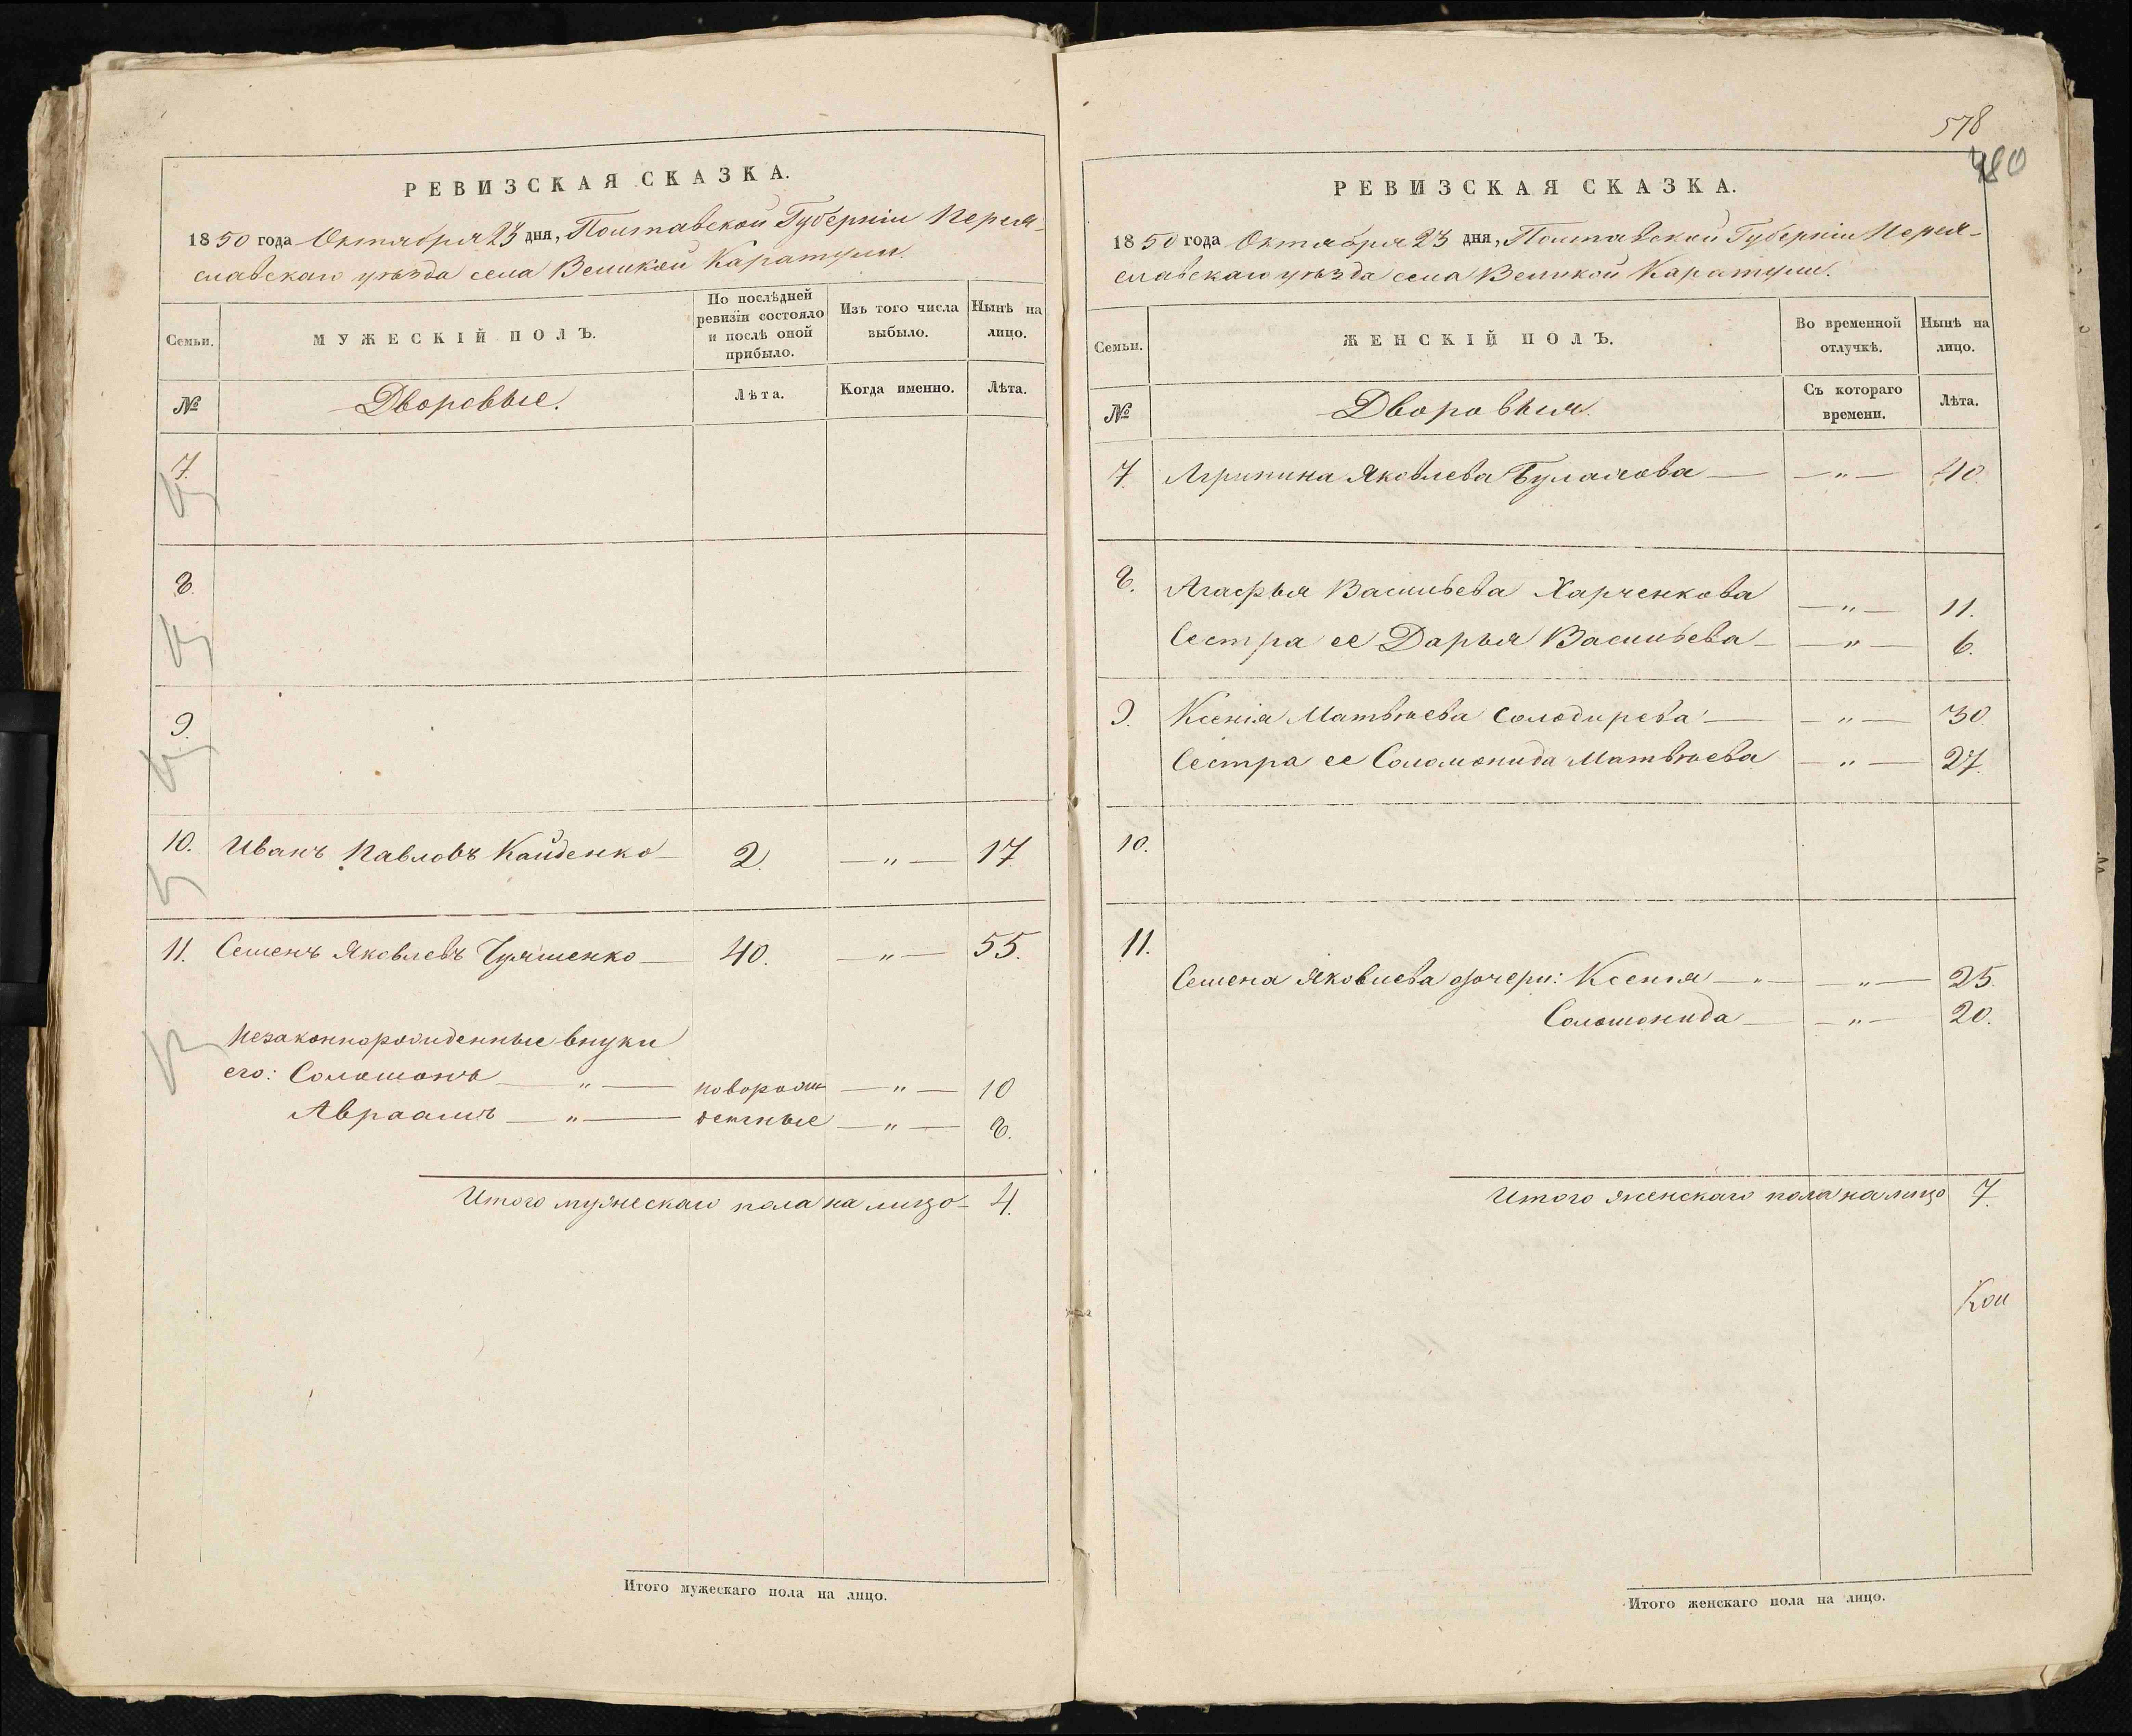 РЕВИЗСКАЯ СКАЗКА.
1850 года Октября 23 дня, Полтавской Губерніи Перея-
славскаго уѣзда села Великой Каратули.
Семьи.
МУЖЕСКІЙ ПОЛЪ.
По послѣдней ревизіи состояло и послѣ оной прибыло.
Изъ того числа выбыло.
Нынѣ на лицо.
№
Дворовые.
Лѣта.
Когда именно.
Лѣта.
7.
8.
9.
10. Иванъ Павловъ Кайденко — 2. — „ — 17.
11. Семенъ Яковлевъ — 40. — „ — 55.
Незаконнорожденные внуки
его: Соломонъ — „ — новорож — „ — 10
Авраамъ — „ — денные — „ — 8.
Итого мужескаго пола на лицо — 4.
Итого мужескаго пола на лицо.
578
480
РЕВИЗСКАЯ СКАЗКА.
1850 года Октября 23 дня, Полтавской Губерніи Перея-
славскаго уѣзда села Великой Каратули.
Семьи.
ЖЕНСКІЙ ПОЛЪ.
Во временной отлучкѣ.
Нынѣ на лицо.
№
Дворовыя.
Съ котораго времени.
Лѣта.
7. Агрипина Яковлева — — „ — 40.
8. Агафья Васильева Харченкова — „ — 11.
Сестра ее Дарья Васильева — — „ — 6.
9. Ксенія Матвѣева Солодирева — — „ — 30.
Сестра ее Соломонида Матвѣева — „ — 27.
10.
11.
Семена Яковлева дочери: Ксенія — „ — — „ — 25.
Соломонида — — „ — 20.
Итого женскаго пола на лицо 7.
Кол
Итого женскаго пола на лицо.